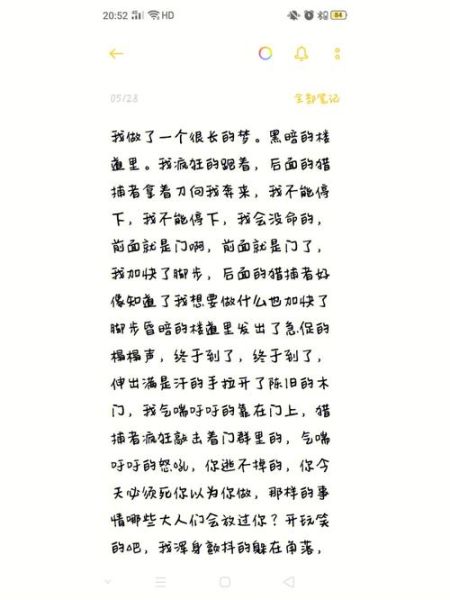 20:52 HD 84
05/28 全部笔记
我做了一个很长的梦。黑暗的楼
道里。我疯狂的跑着，后面的猎
捕者拿着刀向我奔来，我不能停
下，我不能停下，我会没命的，
前面就是门啊，前面就是门了，
我加快了脚步，后面的猎捕者好
像知道了我想要做什么也加快了
脚步昏暗的楼道里发出了急促的
榻榻声，终于到了，终于到了，
伸出满是汗的手拉开了陈旧的木
门，我气喘吁吁的靠在门上，猎
捕者疯狂敲击着门群里的，气喘
吁吁的怒吼，你逃不掉的，你今
天必须死你以为你做，那样的事
情哪些大人们会放过你？开玩笑
的吧，我浑身颤抖的躲在角落，